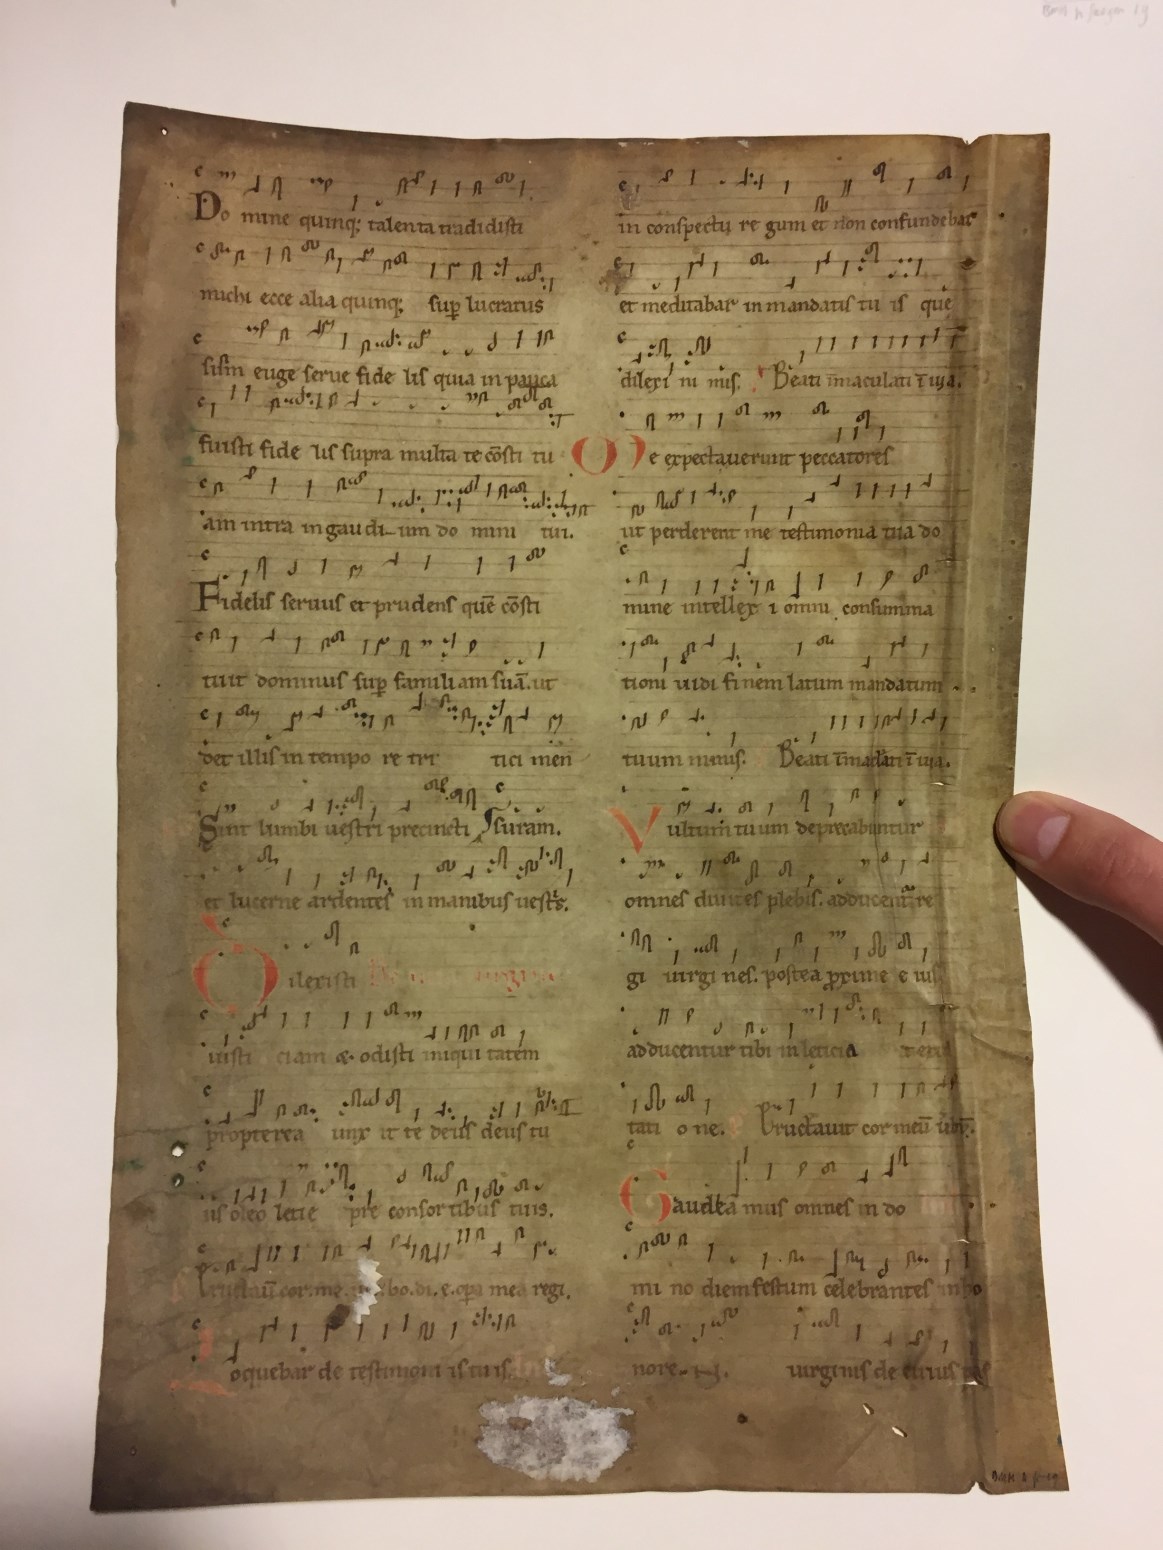 Domine quinq; talenta tradidisti
michi ecce alia quinq; sup lucratus
sum euge serue fide lis quia in pauca
fuisti fide lis supra multa te cōsti tu
am intra in gaudi um do mini tui.
Fidelis seruus et prudens quē cōsti
tuit dominus sup famili am suā. ut
det illis in tempo re tri tici men
Sint lumbi uestri precincti suram.
et lucerne ardentes in manibus uestris.
Dilexisti
iusti ciam & odisti iniqui tatem
propterea unx it te deus deus tu
us oleo letic pre consor tibus tuis.
Eructauit cor. me. bo. di. e. opa mea regi.
Loquebar de testimoni is tuis.
in conspectu re gum et non confundebar
et meditabar in mandatis tu is que
dilexi ni mis. Beati īmaculati ī uia.
Me expectauerunt peccatores
ut perderent me testimonia tua do
mine intellex i omni consumma
tioni uidi finem latum mandatum
tuum nimis. Beati īmaclati ī uia.
Vultum tuum deprecabuntur
omnes diuites plebis. adducentur re
gi uirgi nes. postea pxime e ius
adducentur tibi in leticia et exul
tati o ne. Eructauit cor meū ūbū.
Gaudea mus omnes in do
mi no diem festum celebrantes in ho
nore uirginis de cuius